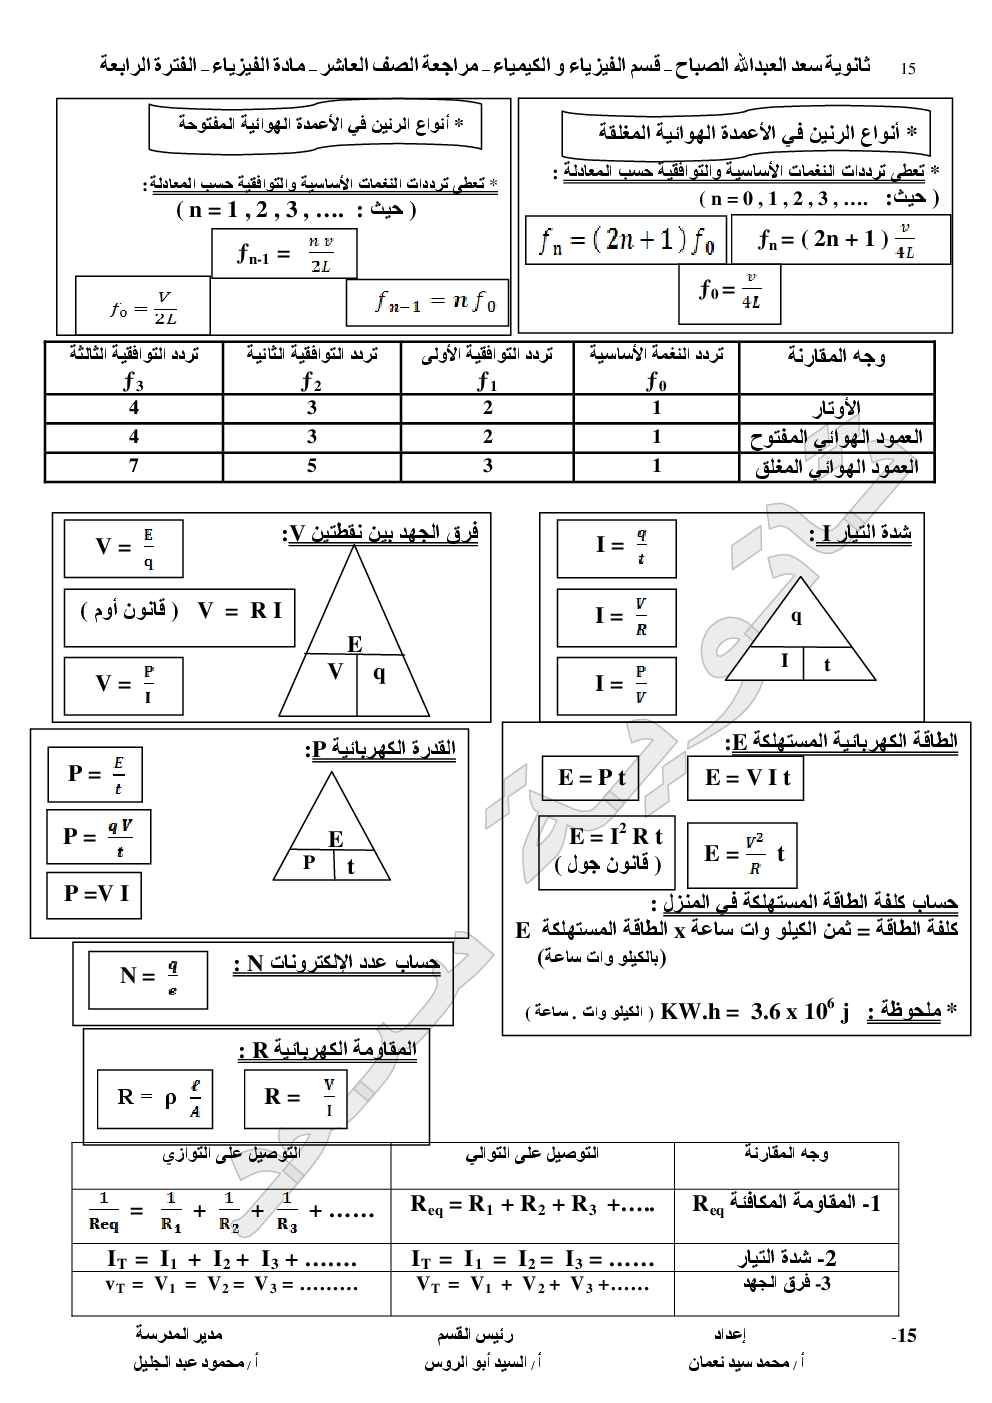 15 ثانوية سعد العبدالله الصباح – قسم الفيزياء و الكيمياء – مراجعة الصف العاشر – مادة الفيزياء – الفترة الرابعة
* أنواع الرنين في الأعمدة الهوائية المغلقة
* تعطى ترددات النغمات الأساسية والتوافقية حسب المعادلة :
( حيث: n = 0 , 1 , 2 , 3 , …. )
ƒn = ( 2n + 1 ) v/4L
f_n = ( 2n + 1 ) f_0
ƒ0 = v/4L
* أنواع الرنين في الأعمدة الهوائية المفتوحة
* تعطى ترددات النغمات الأساسية والتوافقية حسب المعادلة :
( حيث : n = 1 , 2 , 3 , …. )
ƒn-1 = n v/2L
f_n−1 = n f_0
fo = V/2L
وجه المقارنة تردد النغمة الأساسية تردد التوافقية الأولى تردد التوافقية الثانية تردد التوافقية الثالثة
ƒ0 ƒ1 ƒ2 ƒ3
الأوتار 1 2 3 4
العمود الهوائي المفتوح 1 2 3 4
العمود الهوائي المغلق 1 3 5 7
شدة التيار I :
I = q/t
I = V/R
I = P/V
q
I t
فرق الجهد بين نقطتين V:
V = E/q
V = R I ( قانون أوم )
V = P/I
E
V q
الطاقة الكهربائية المستهلكة E:
E = V I t
E = P t
E = V²/R t
E = I² R t
( قانون جول )
حساب كلفة الطاقة المستهلكة في المنزل :
كلفة الطاقة = ثمن الكيلو وات ساعة x الطاقة المستهلكة E
(بالكيلو وات ساعة)
* ملحوظة : KW.h = 3.6 x 10⁶ j ( الكيلو وات . ساعة )
القدرة الكهربائية P:
P = E/t
P = q V/t
P =V I
E
P t
حساب عدد الإلكترونات N :
N = q/e
المقاومة الكهربائية R :
R = V/I
R = ρ ℓ/A
وجه المقارنة التوصيل على التوالي التوصيل على التوازي
1- المقاومة المكافئة Req Req = R1 + R2 + R3 +….. 1/Req = 1/R1 + 1/R2 + 1/R3 + ……
2- شدة التيار IT = I1 = I2 = I3 = …… IT = I1 + I2 + I3 + …….
3- فرق الجهد VT = V1 + V2 + V3 +…… vT = V1 = V2 = V3 = ………
15- إعداد رئيس القسم مدير المدرسة
أ / محمد سيد نعمان أ / السيد أبو الروس أ / محمود عبد الجليل